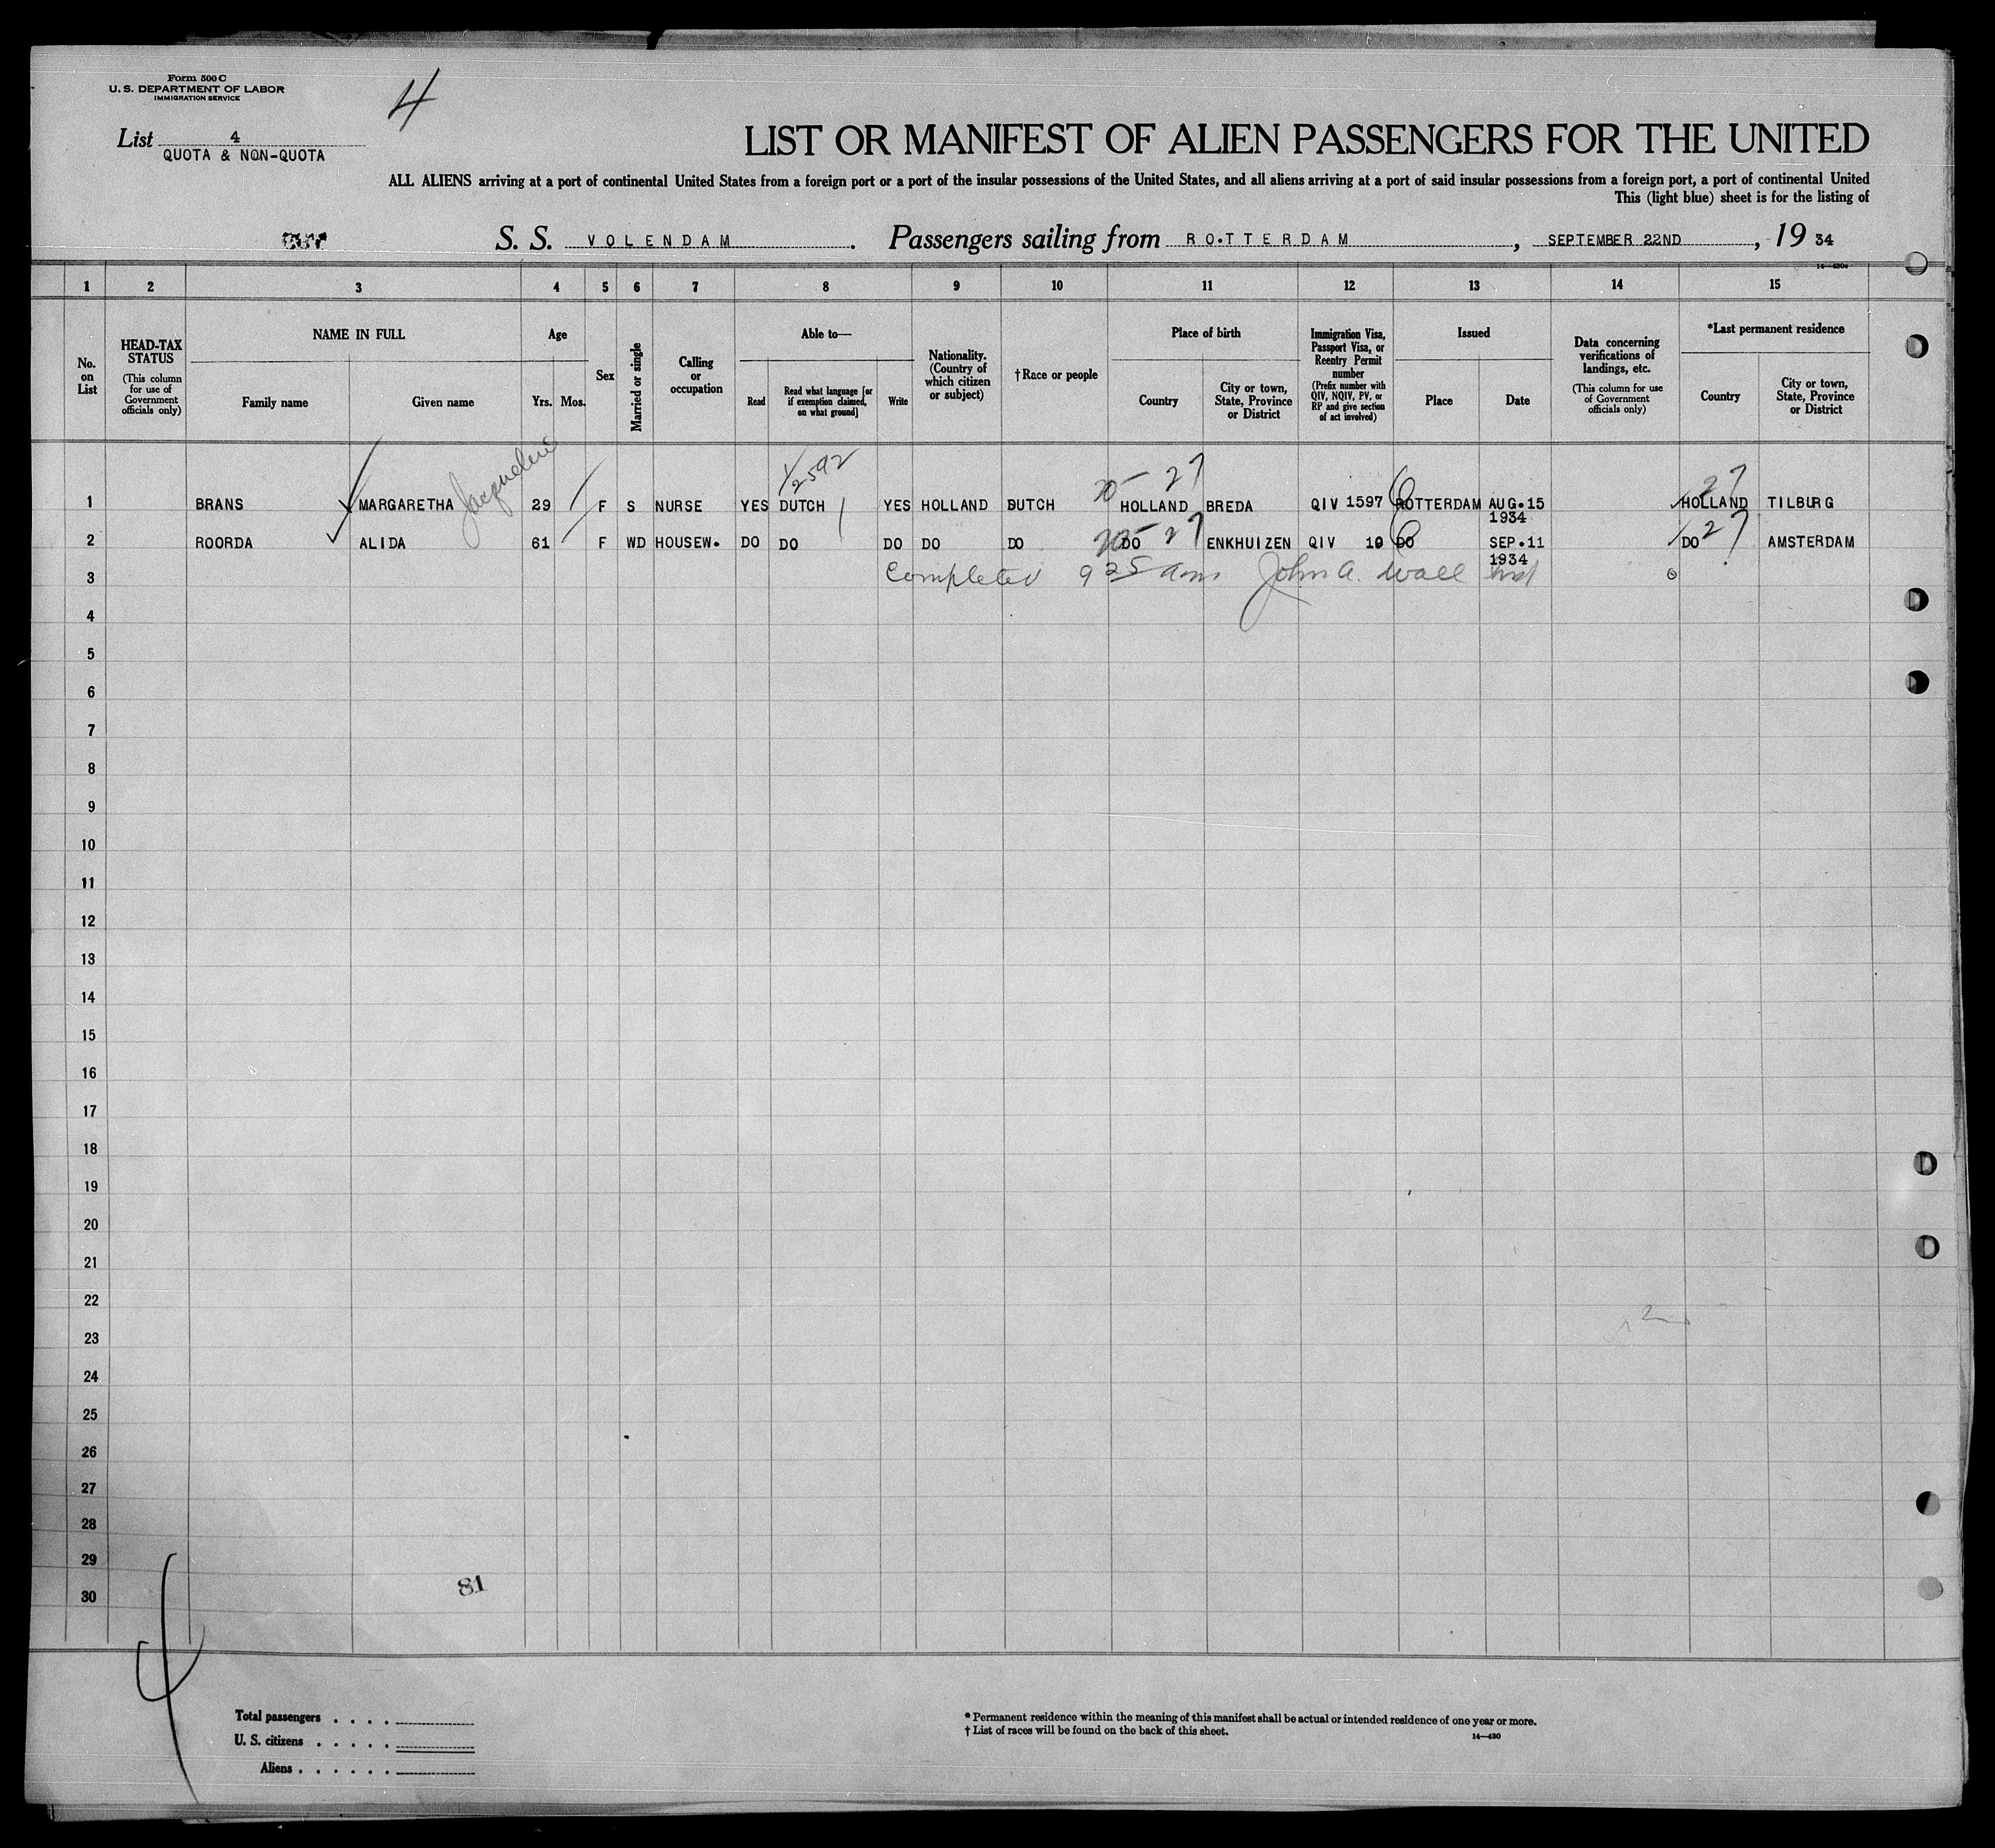 Form 500 C
U. S. DEPARTMENT OF LABOR
IMMIGRATION SERVICE
4
List 4
QUOTA & NON-QUOTA
LIST OR MANIFEST OF ALIEN PASSENGERS FOR THE UNITED
ALL ALIENS arriving at a port of continental United States from a foreign port or a port of the insular possessions of the United States, and all aliens arriving at a port of said insular possessions from a foreign port, a port of continental United
This (light blue) sheet is for the listing of
S. S. VOLENDAM. Passengers sailing from ROTTERDAM, SEPTEMBER 22ND, 1934
1 2 3 4 5 6 7 8 9 10 11 12 13 14 15
No. on List
HEAD-TAX STATUS (This column for use of Government officials only)
NAME IN FULL
Family name Given name
Age
Yrs. Mos.
Sex
Married or single
Calling or occupation
Able to—
Read Read what language [or if exemption claimed, on what ground] Write
Nationality. (Country of which citizen or subject)
†Race or people
Place of birth
Country City or town, State, Province or District
Immigration Visa, Passport Visa, or Reentry Permit number (Prefix number with QIV, NQIV, PV, or RP and give section of act involved)
Issued
Place Date
Data concerning verifications of landings, etc. (This column for use of Government officials only)
*Last permanent residence
Country City or town, State, Province or District
1/2592
20-27 27
1 BRANS MARGARETHA Jacqueline 29 F S NURSE YES DUTCH YES HOLLAND DUTCH HOLLAND BREDA QIV 1597 ROTTERDAM AUG.15 1934 HOLLAND TILBURG
2 ROORDA ALIDA 61 F WD HOUSEW. DO DO DO DO DO DO 27 ENKHUIZEN QIV 10 DO SEP.11 1934 DO 27 AMSTERDAM
3 Completed 9 25 am John A. Wall
4
5
6
7
8
9
10
11
12
13
14
15
16
17
18
19
20
21
22
23
24
25
26
27
28
29
30
81
4
Total passengers
U. S. citizens
Aliens
* Permanent residence within the meaning of this manifest shall be actual or intended residence of one year or more.
† List of races will be found on the back of this sheet.
14—430